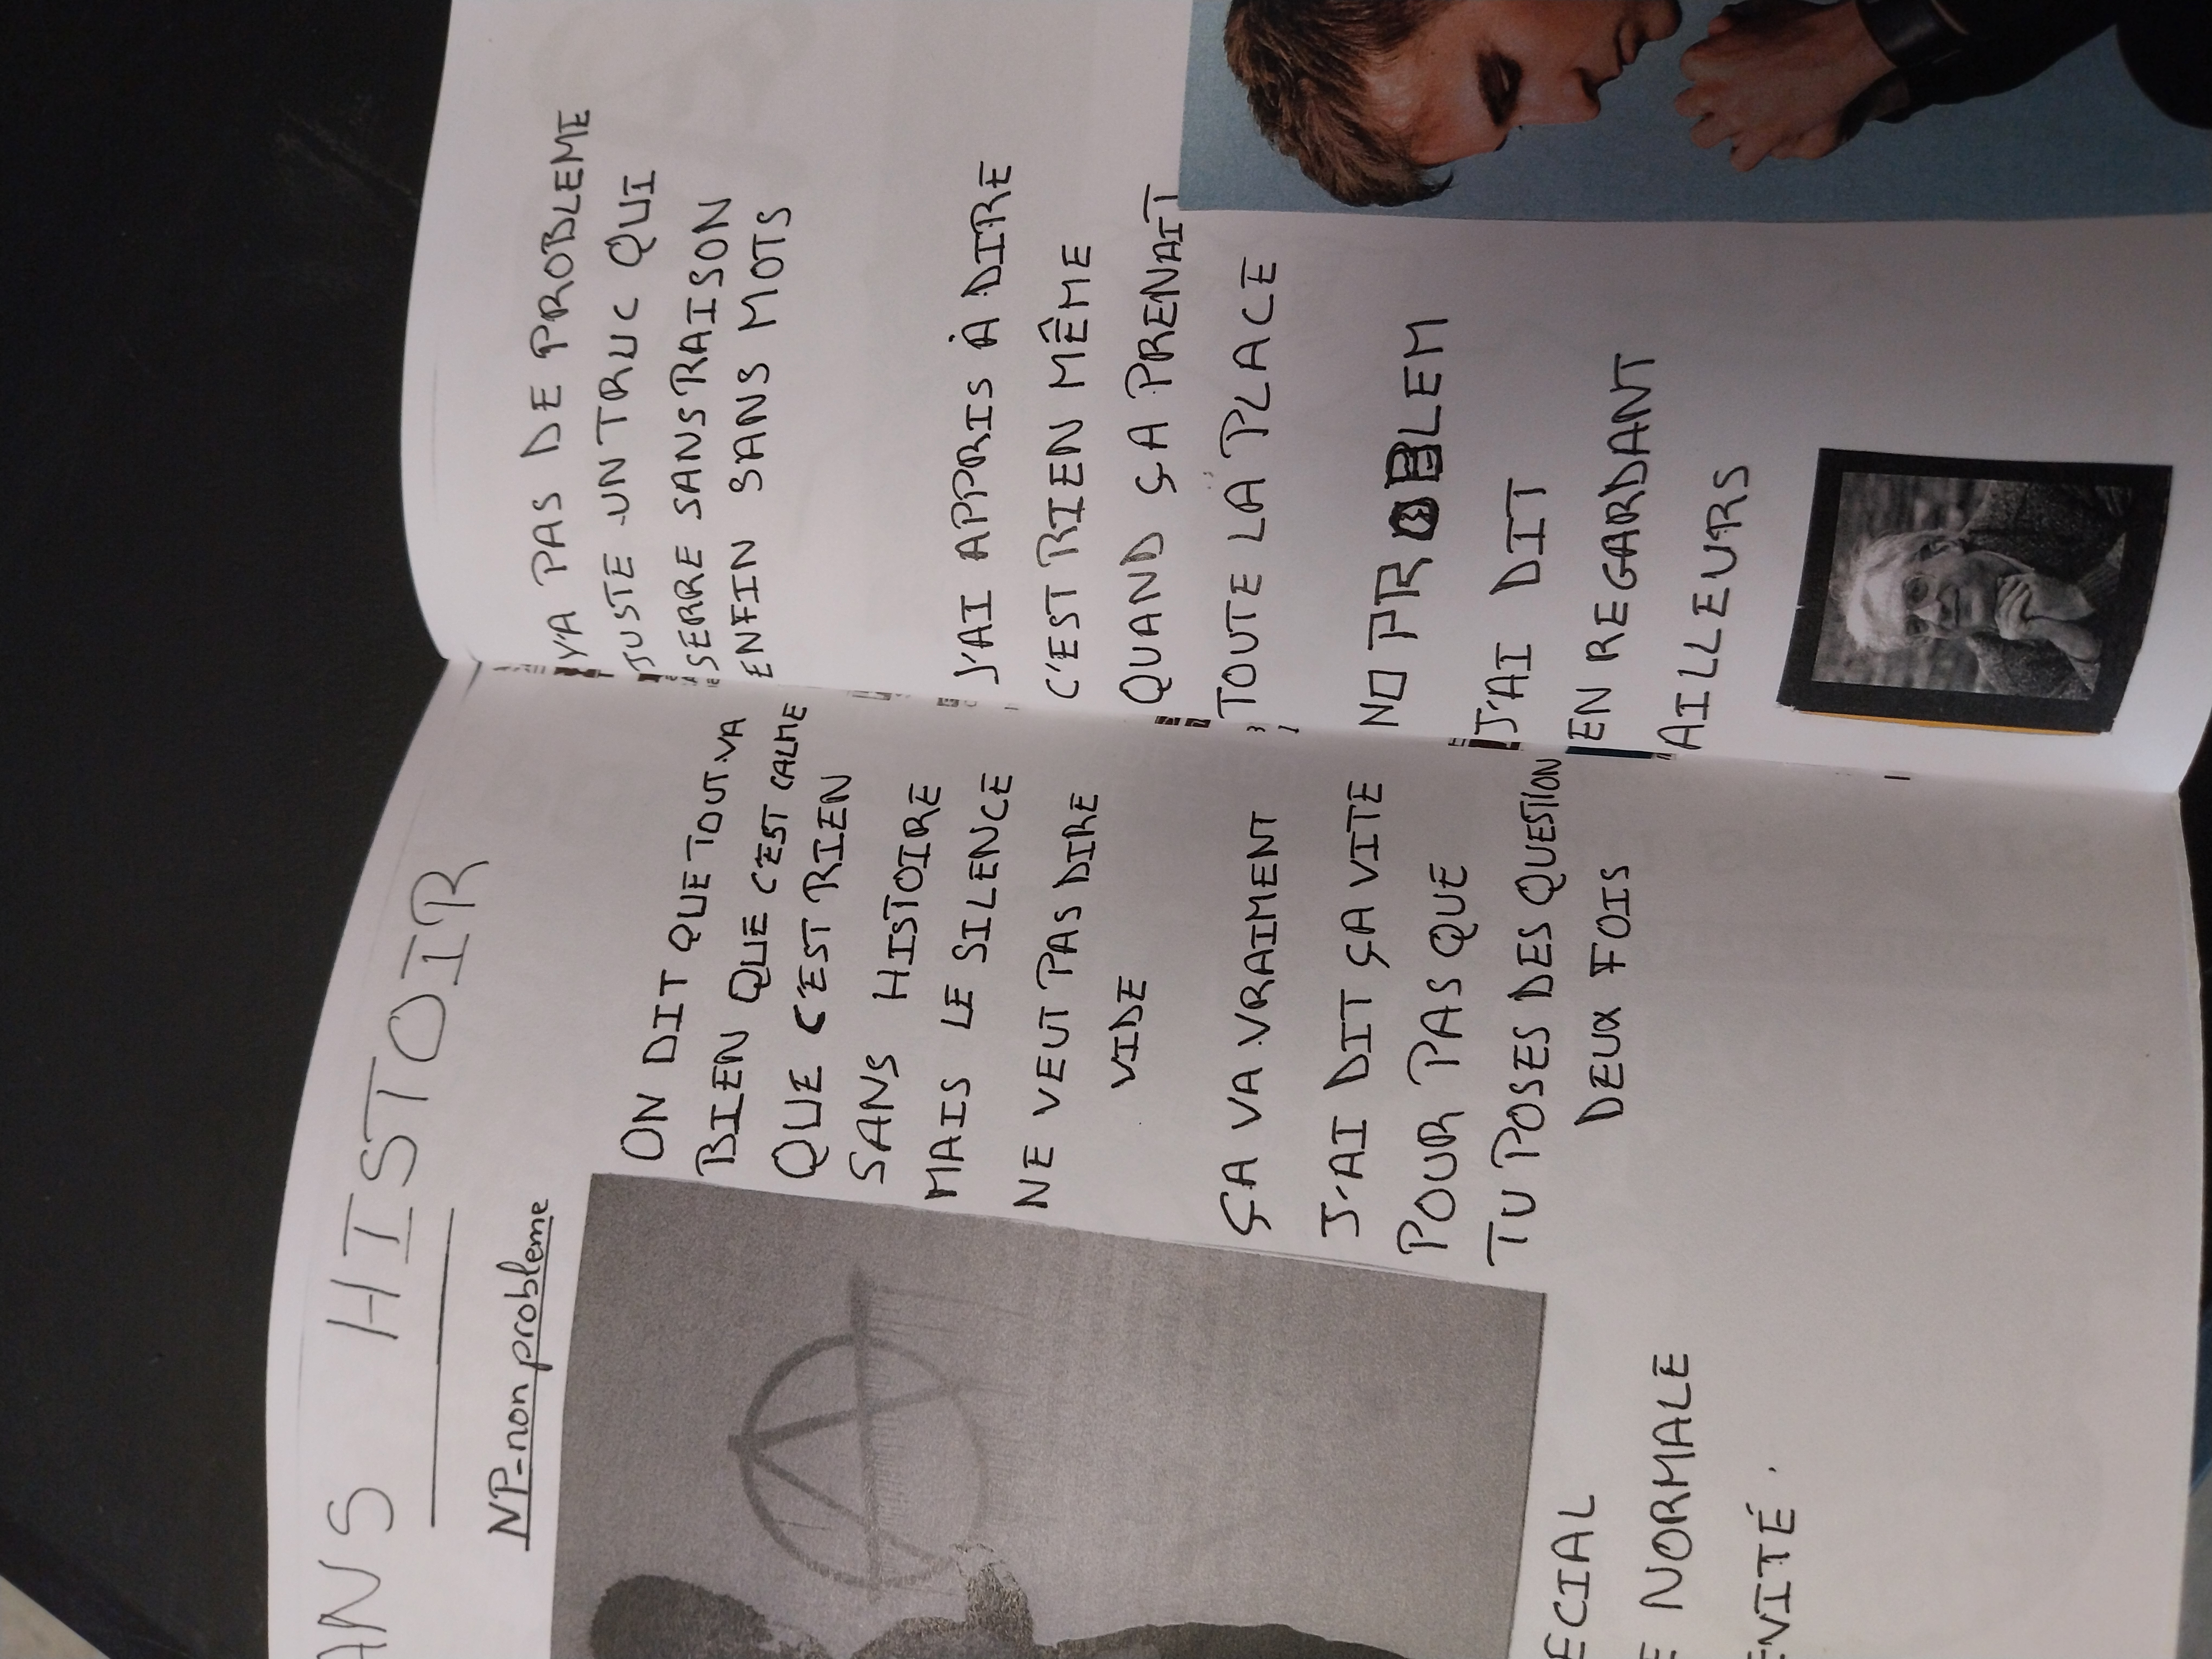 ANS HISTOIR
NP-non probleme
ON DIT QUE TOUT VA
BIEN QUE C'EST CALME
QUE C'EST RIEN
SANS HISTOIRE
MAIS LE SILENCE
NE VEUT PAS DIRE
VIDE
ÇA VA VRAIMENT
J'AI DIT ÇA VITE
POUR PAS QUE
TU POSES DES QUESTION
DEUX FOIS
ECIAL
E NORMALE
ENVITÉ.
Y'A PAS DE PROBLEME
JUSTE UN TRUC QUI
SERRE SANS RAISON
ENFIN SANS MOTS
J'AI APPRIS À DIRE
C'EST RIEN MÊME
QUAND ÇA PRENAIT
TOUTE LA PLACE
NO PROBLEM
J'AI DIT
EN REGARDANT
AILLEURS